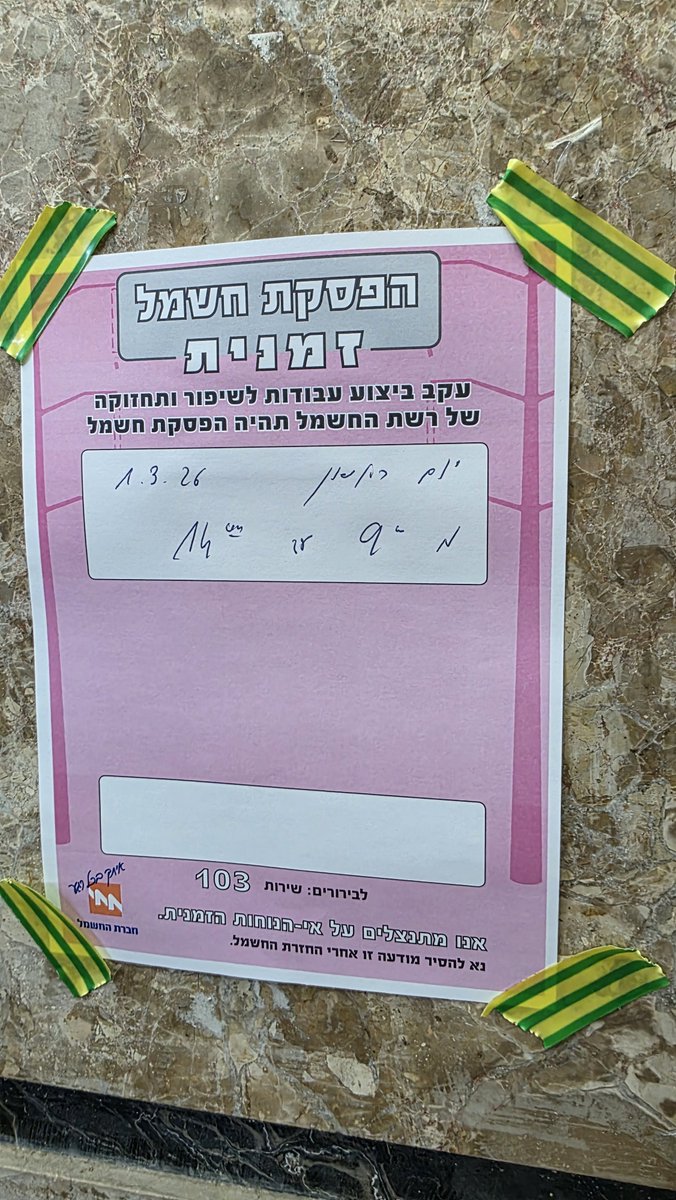 הפסקת חשמל
זמנית
עקב ביצוע עבודות לשיפור ותחזוקה
של רשת החשמל תהיה הפסקת חשמל
יום ראשון 1.3.26
מ 9 עד 14
לבירורים: שירות 103
אנו מתנצלים על אי-הנוחות הזמנית.
נא להסיר מודעה זו אחרי החזרת החשמל.
איתך בכל רגע
חברת החשמל